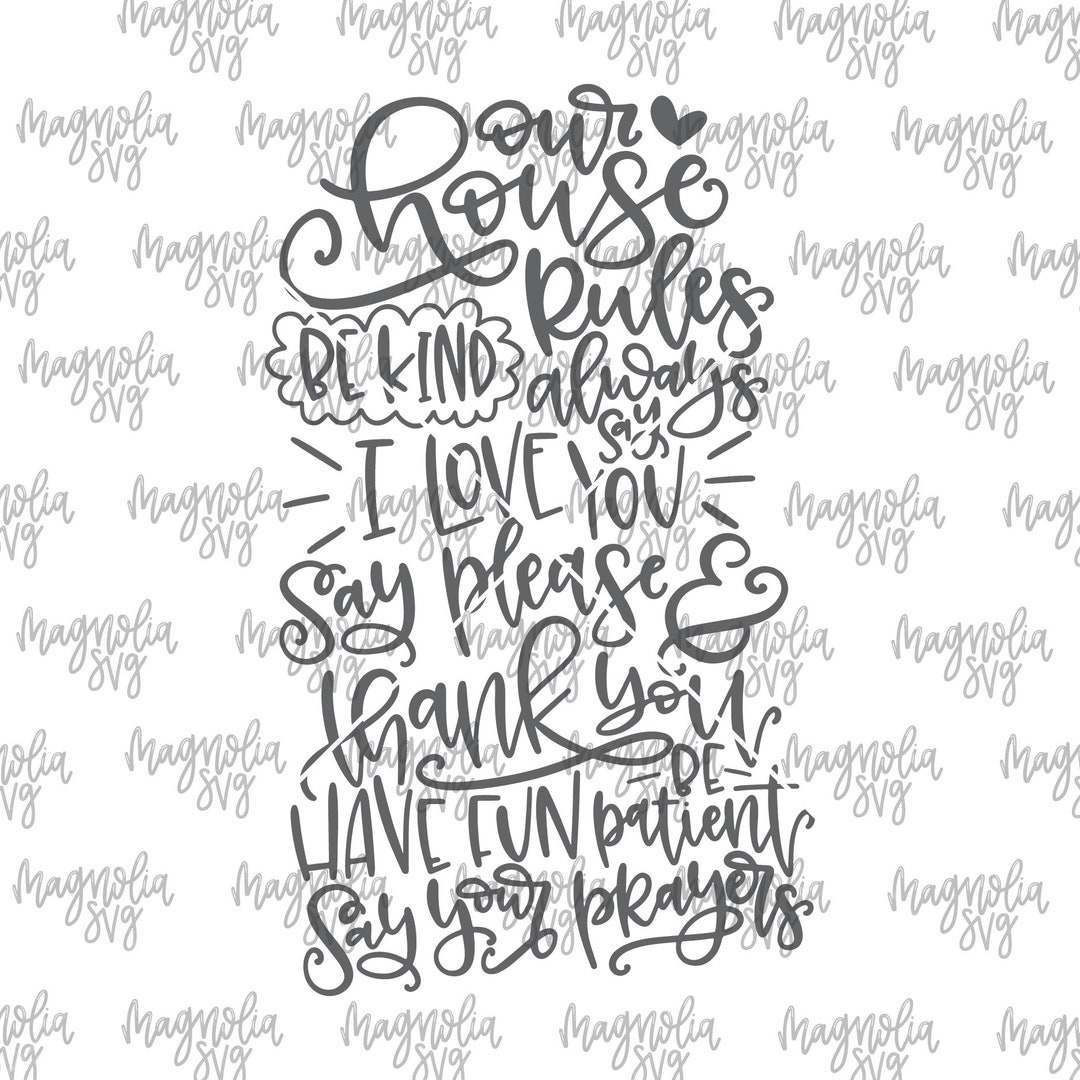 our
house
Rules
BE KIND
always
say
I LOVE YOU
Say please &
thank you
BE
HAVE FUN patient
Say your prayers
magnolia
SVG